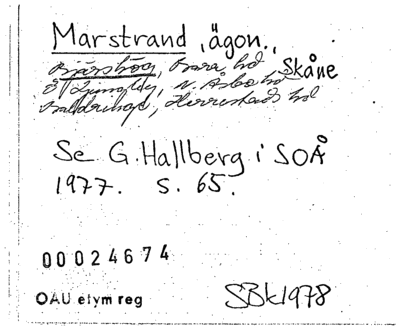 Marstrand, ägon.,
Bjärshög, Bara hd Skåne
Ö Ljungby, N. Åsbo hd
Baldringe, Herrestads hd
Se G. Hallberg i SOÅ
1977. s. 65.
00024674
OAU etym reg SBk1978